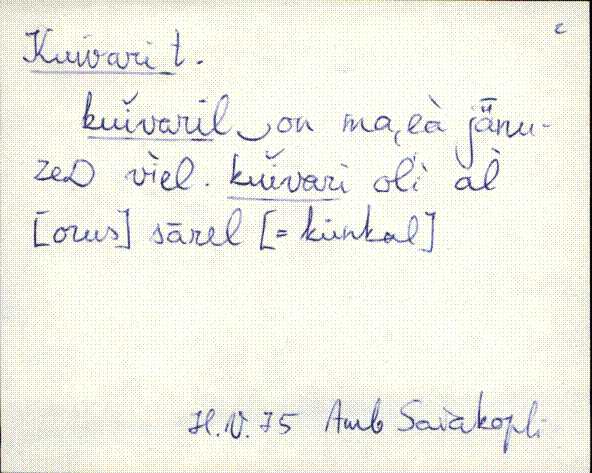 c
Kuivari t.
kuĭvaril‿on ma,eà jā̈nu-
zeD vìel. kuĭvari oli àl
[orus] sārel [= künkal]
H.V. 75 Amb Saiakopli